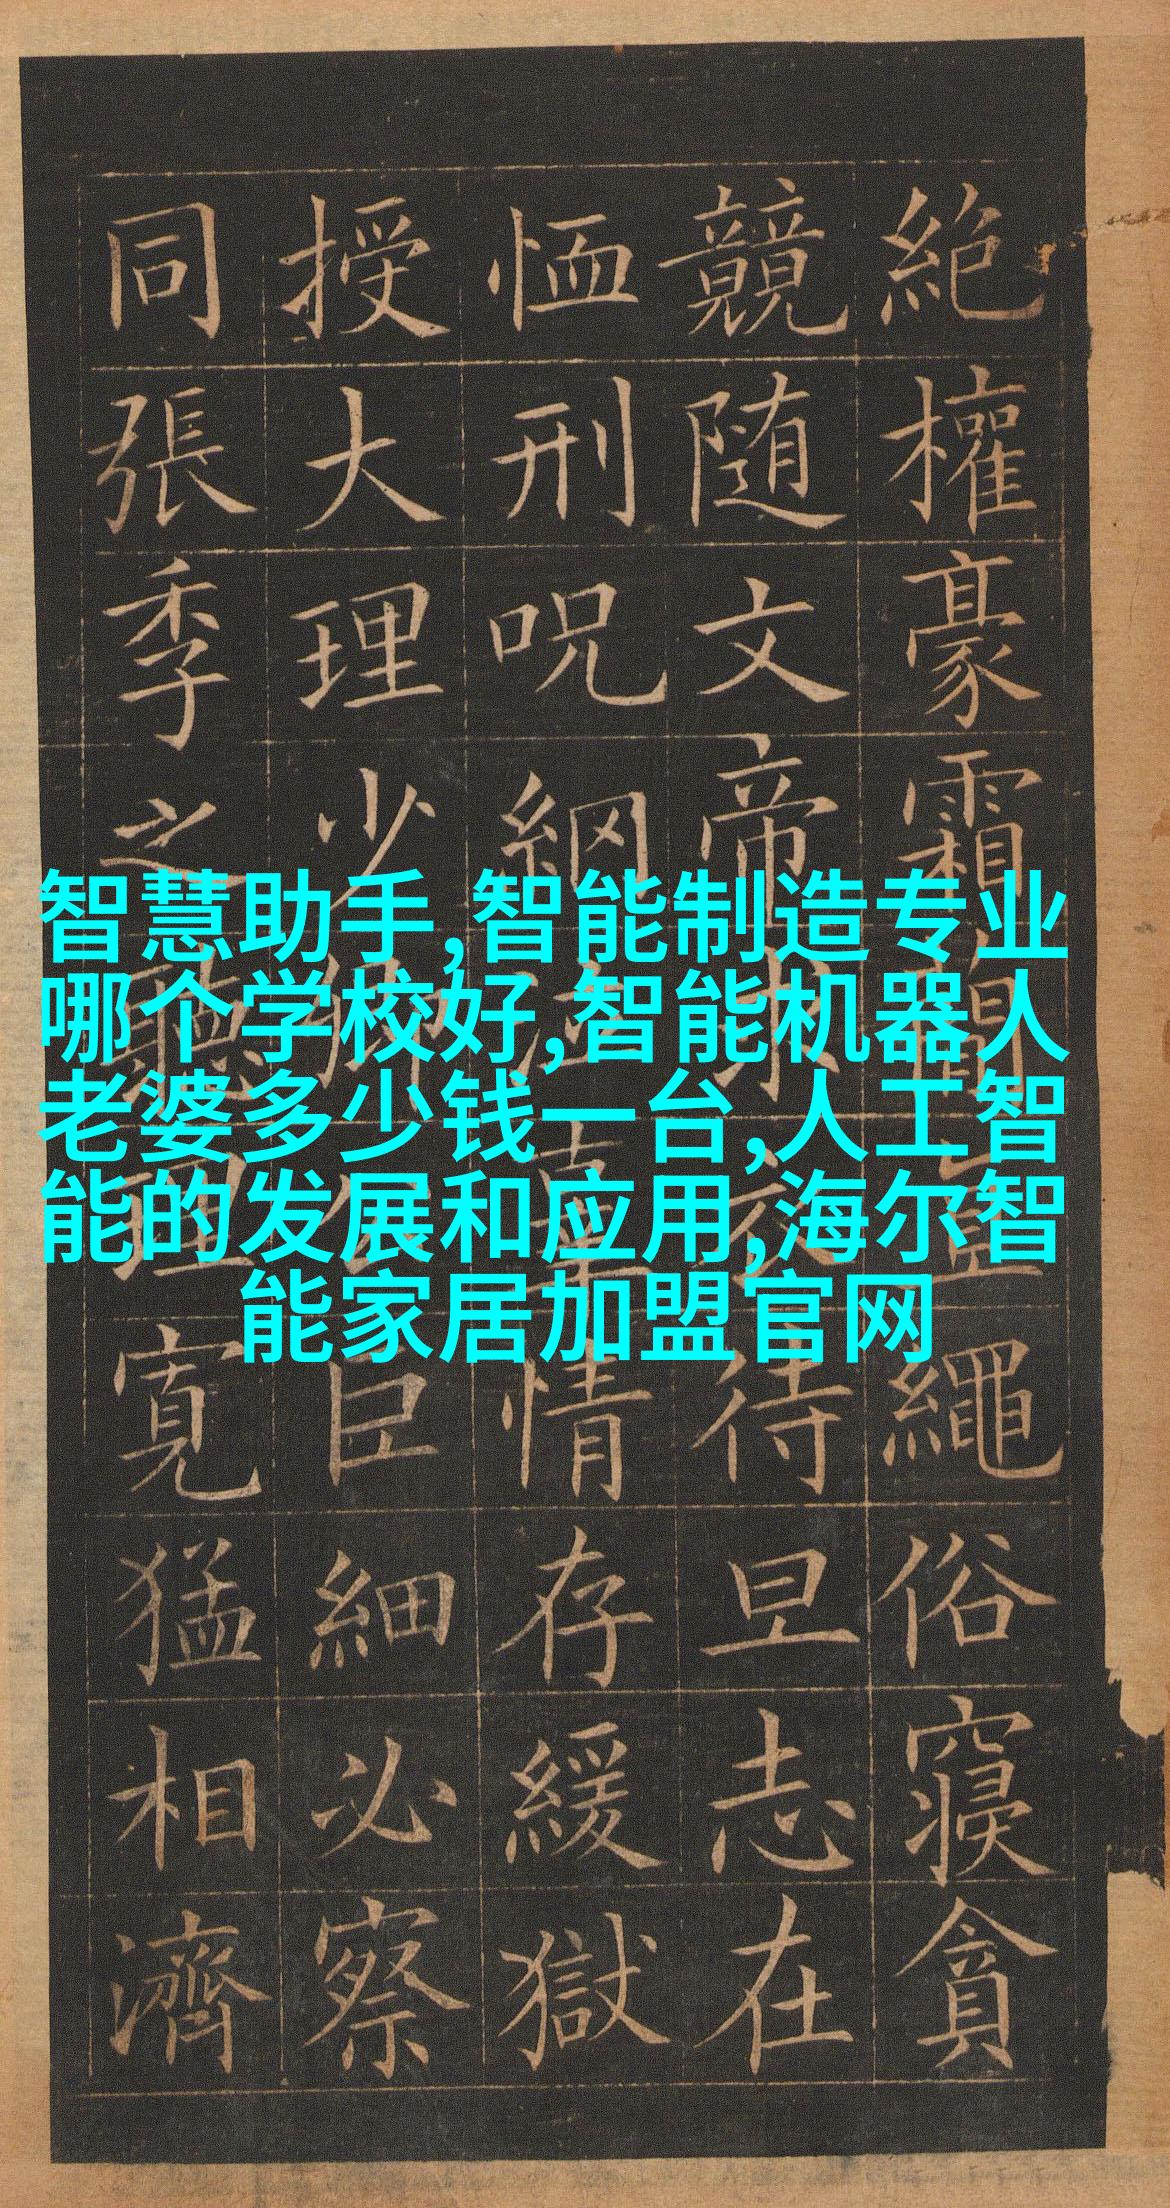 智慧助手,智能制造专业
哪个学校好,智能机器人
老婆多少钱一台,人工智
能的发展和应用,海尔智
能家居加盟官网
絶權豪霜繩俗寝貪
競随文帝待旦志在
恤刑呪網情存緩獄
授大理少臣細必察
同張季之寬猛相濟